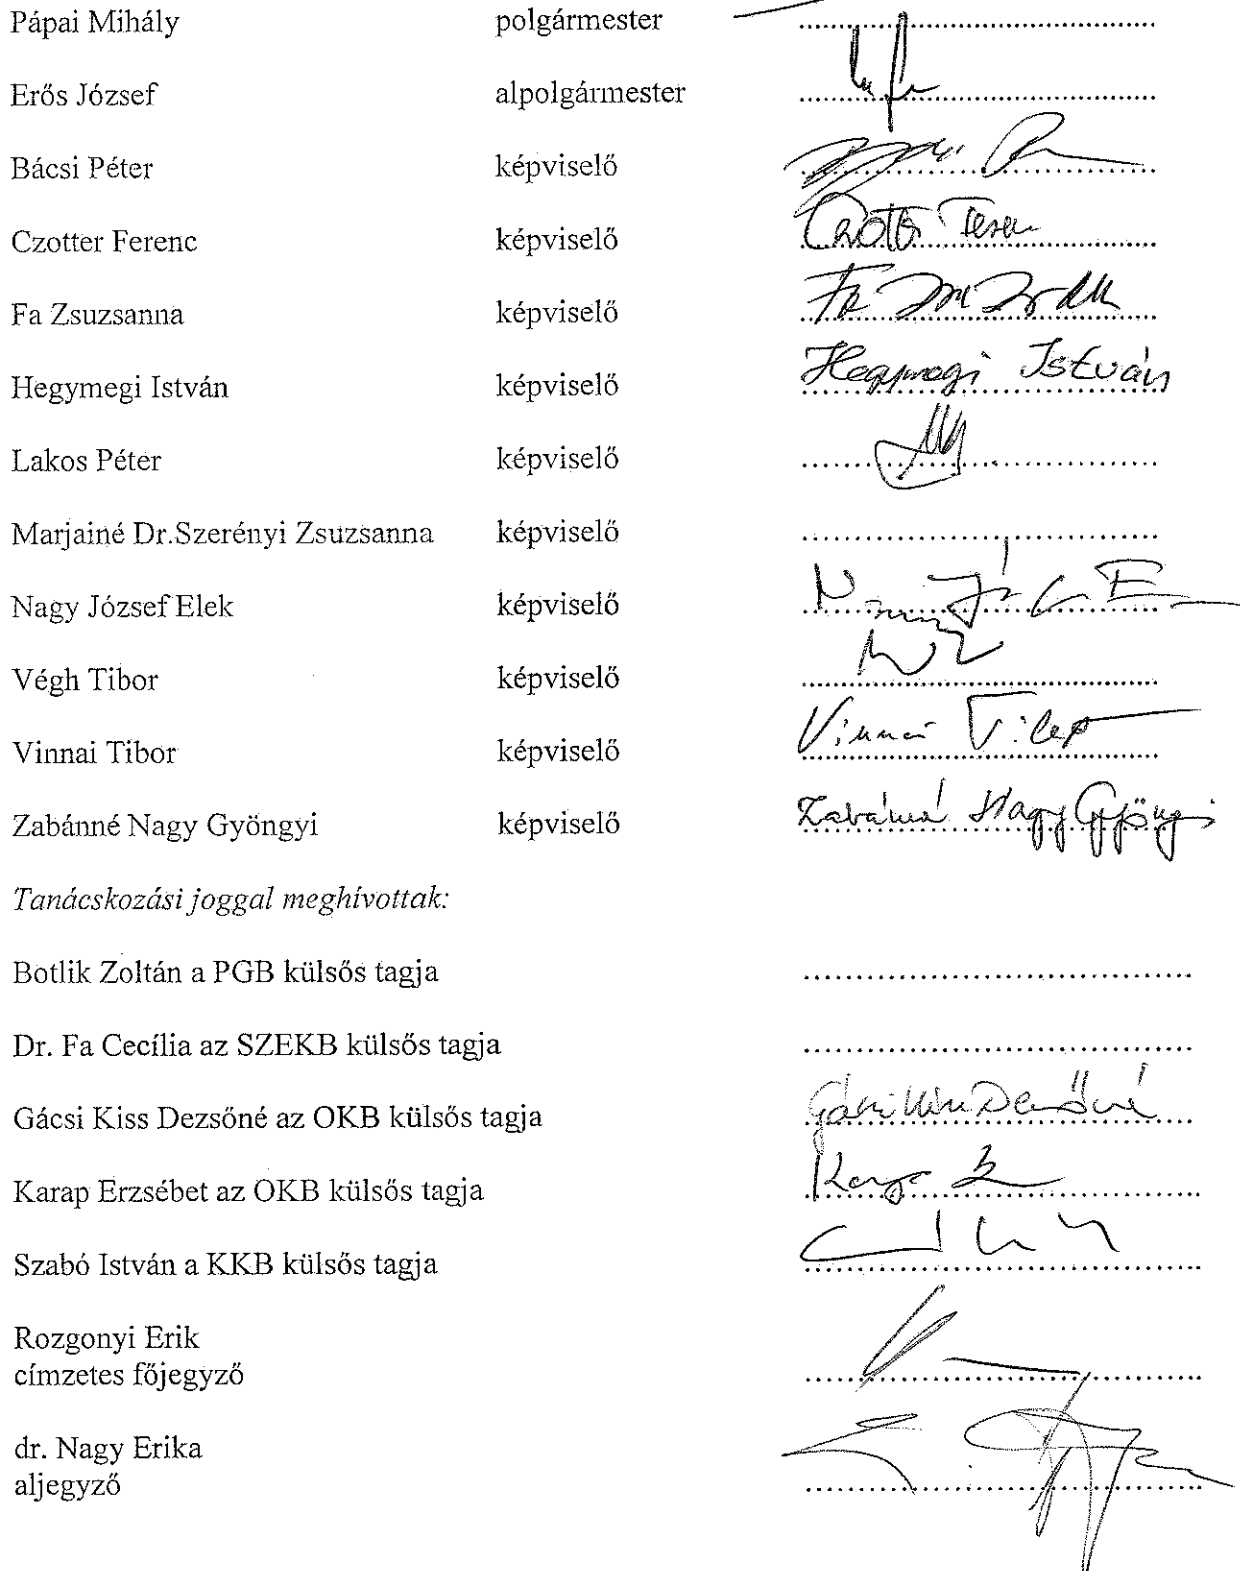 Pápai Mihály polgármester
Erős József alpolgármester
Bácsi Péter képviselő
Czotter Ferenc képviselő
Fa Zsuzsanna képviselő
Hegymegi István képviselő Hegymegi István
Lakos Péter képviselő
Marjainé Dr.Szerényi Zsuzsanna képviselő
Nagy József Elek képviselő
Végh Tibor képviselő
Vinnai Tibor képviselő Vinnai Tibor
Zabánné Nagy Gyöngyi képviselő Zabánné Nagy Gyöngyi
Tanácskozási joggal meghívottak:
Botlik Zoltán a PGB külsős tagja
Dr. Fa Cecília az SZEKB külsős tagja
Gácsi Kiss Dezsőné az OKB külsős tagja Gácsi Kiss Dezsőné
Karap Erzsébet az OKB külsős tagja
Szabó István a KKB külsős tagja
Rozgonyi Erik
címzetes főjegyző
dr. Nagy Erika
aljegyző